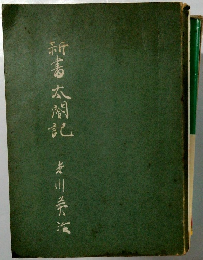 新書太閤記
吉川英治